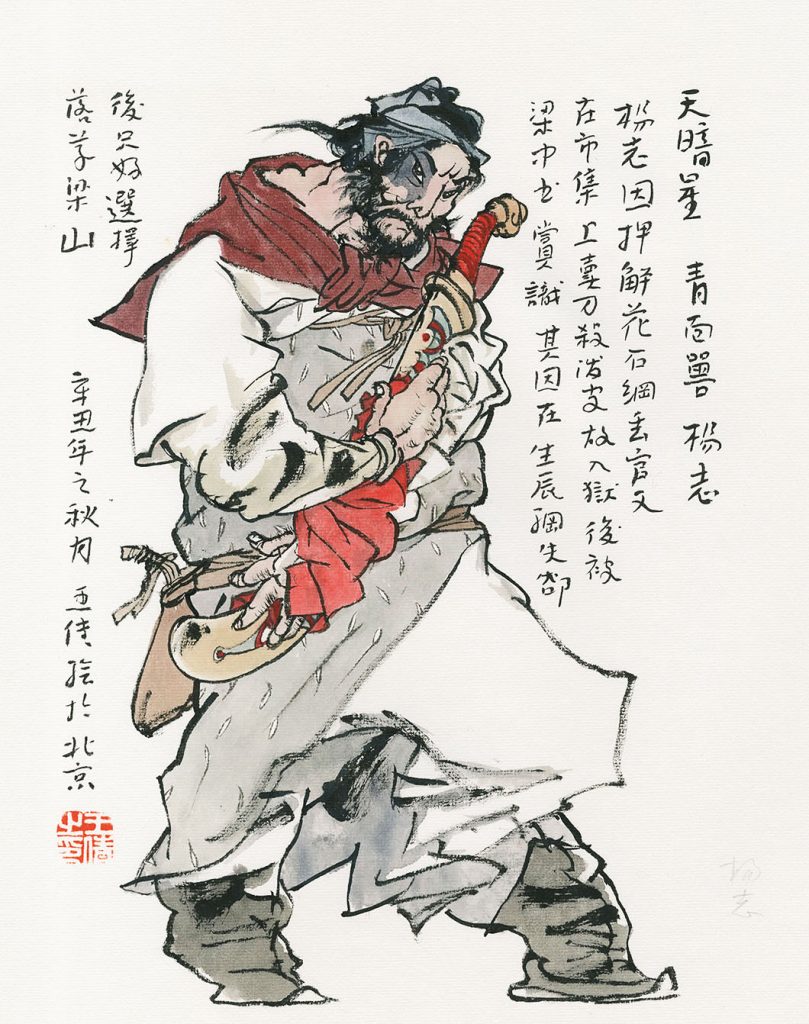 天暗星 青面獸 楊志
楊志因押解花石綱丟官又
在市集上賣刀殺潑皮故入獄後被
梁中书賞識 其因在生辰綱失卻
後只好選擇
落草梁山
辛丑年之秋月 繪於北京
杨志